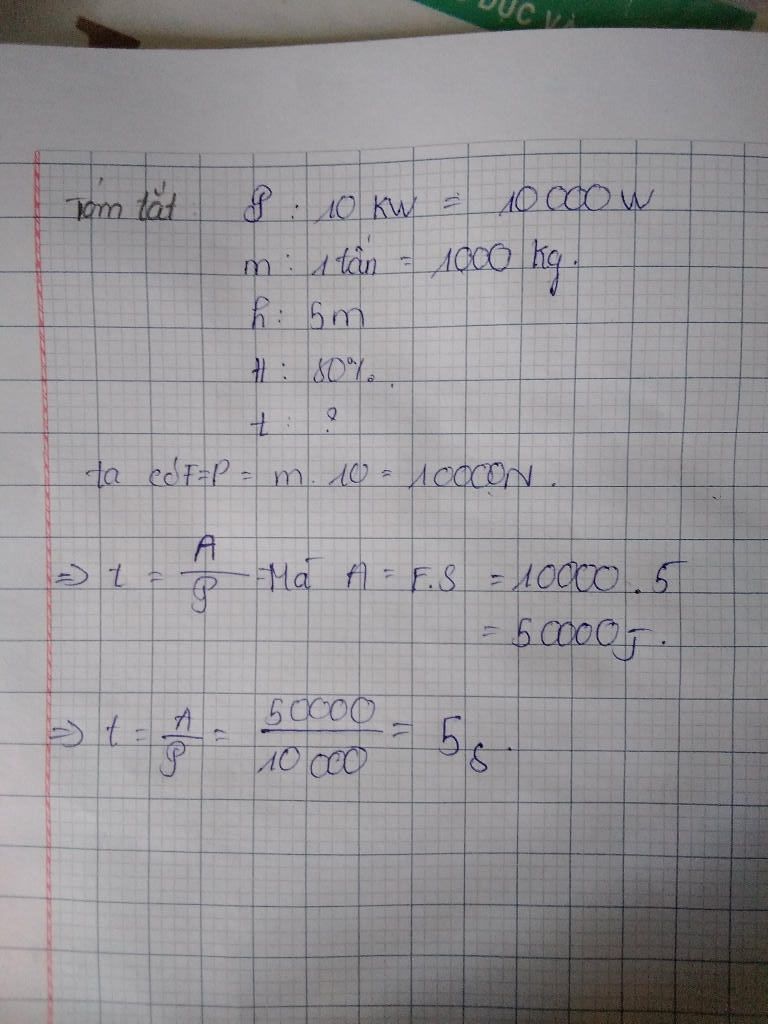 DỤC VÀ
Tóm tắt P : 10 KW = 10 000 W
m : 1 tấn = 1000 kg.
h : 5m
H : 80%.
t : ?
ta có F=P = m. 10 = 10000N.
=> t = A/P = Mà A = F.S = 10000 . 5
= 50000J.
=> t = A/P = 50000/10 000 = 5s.